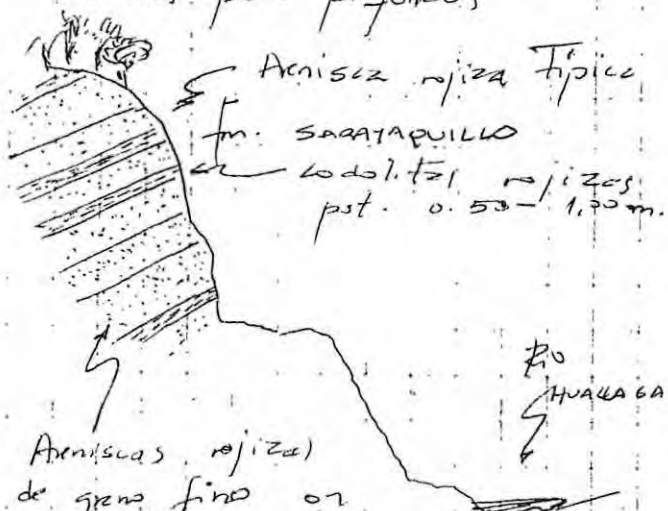 Arenisca rojiza Típica
fm. SARAYAQUILLO
Lodolitas rojizas
pot. 0.50 - 1,00 m.
Río
HUALLAGA
Areniscas rojizas
de grano fino